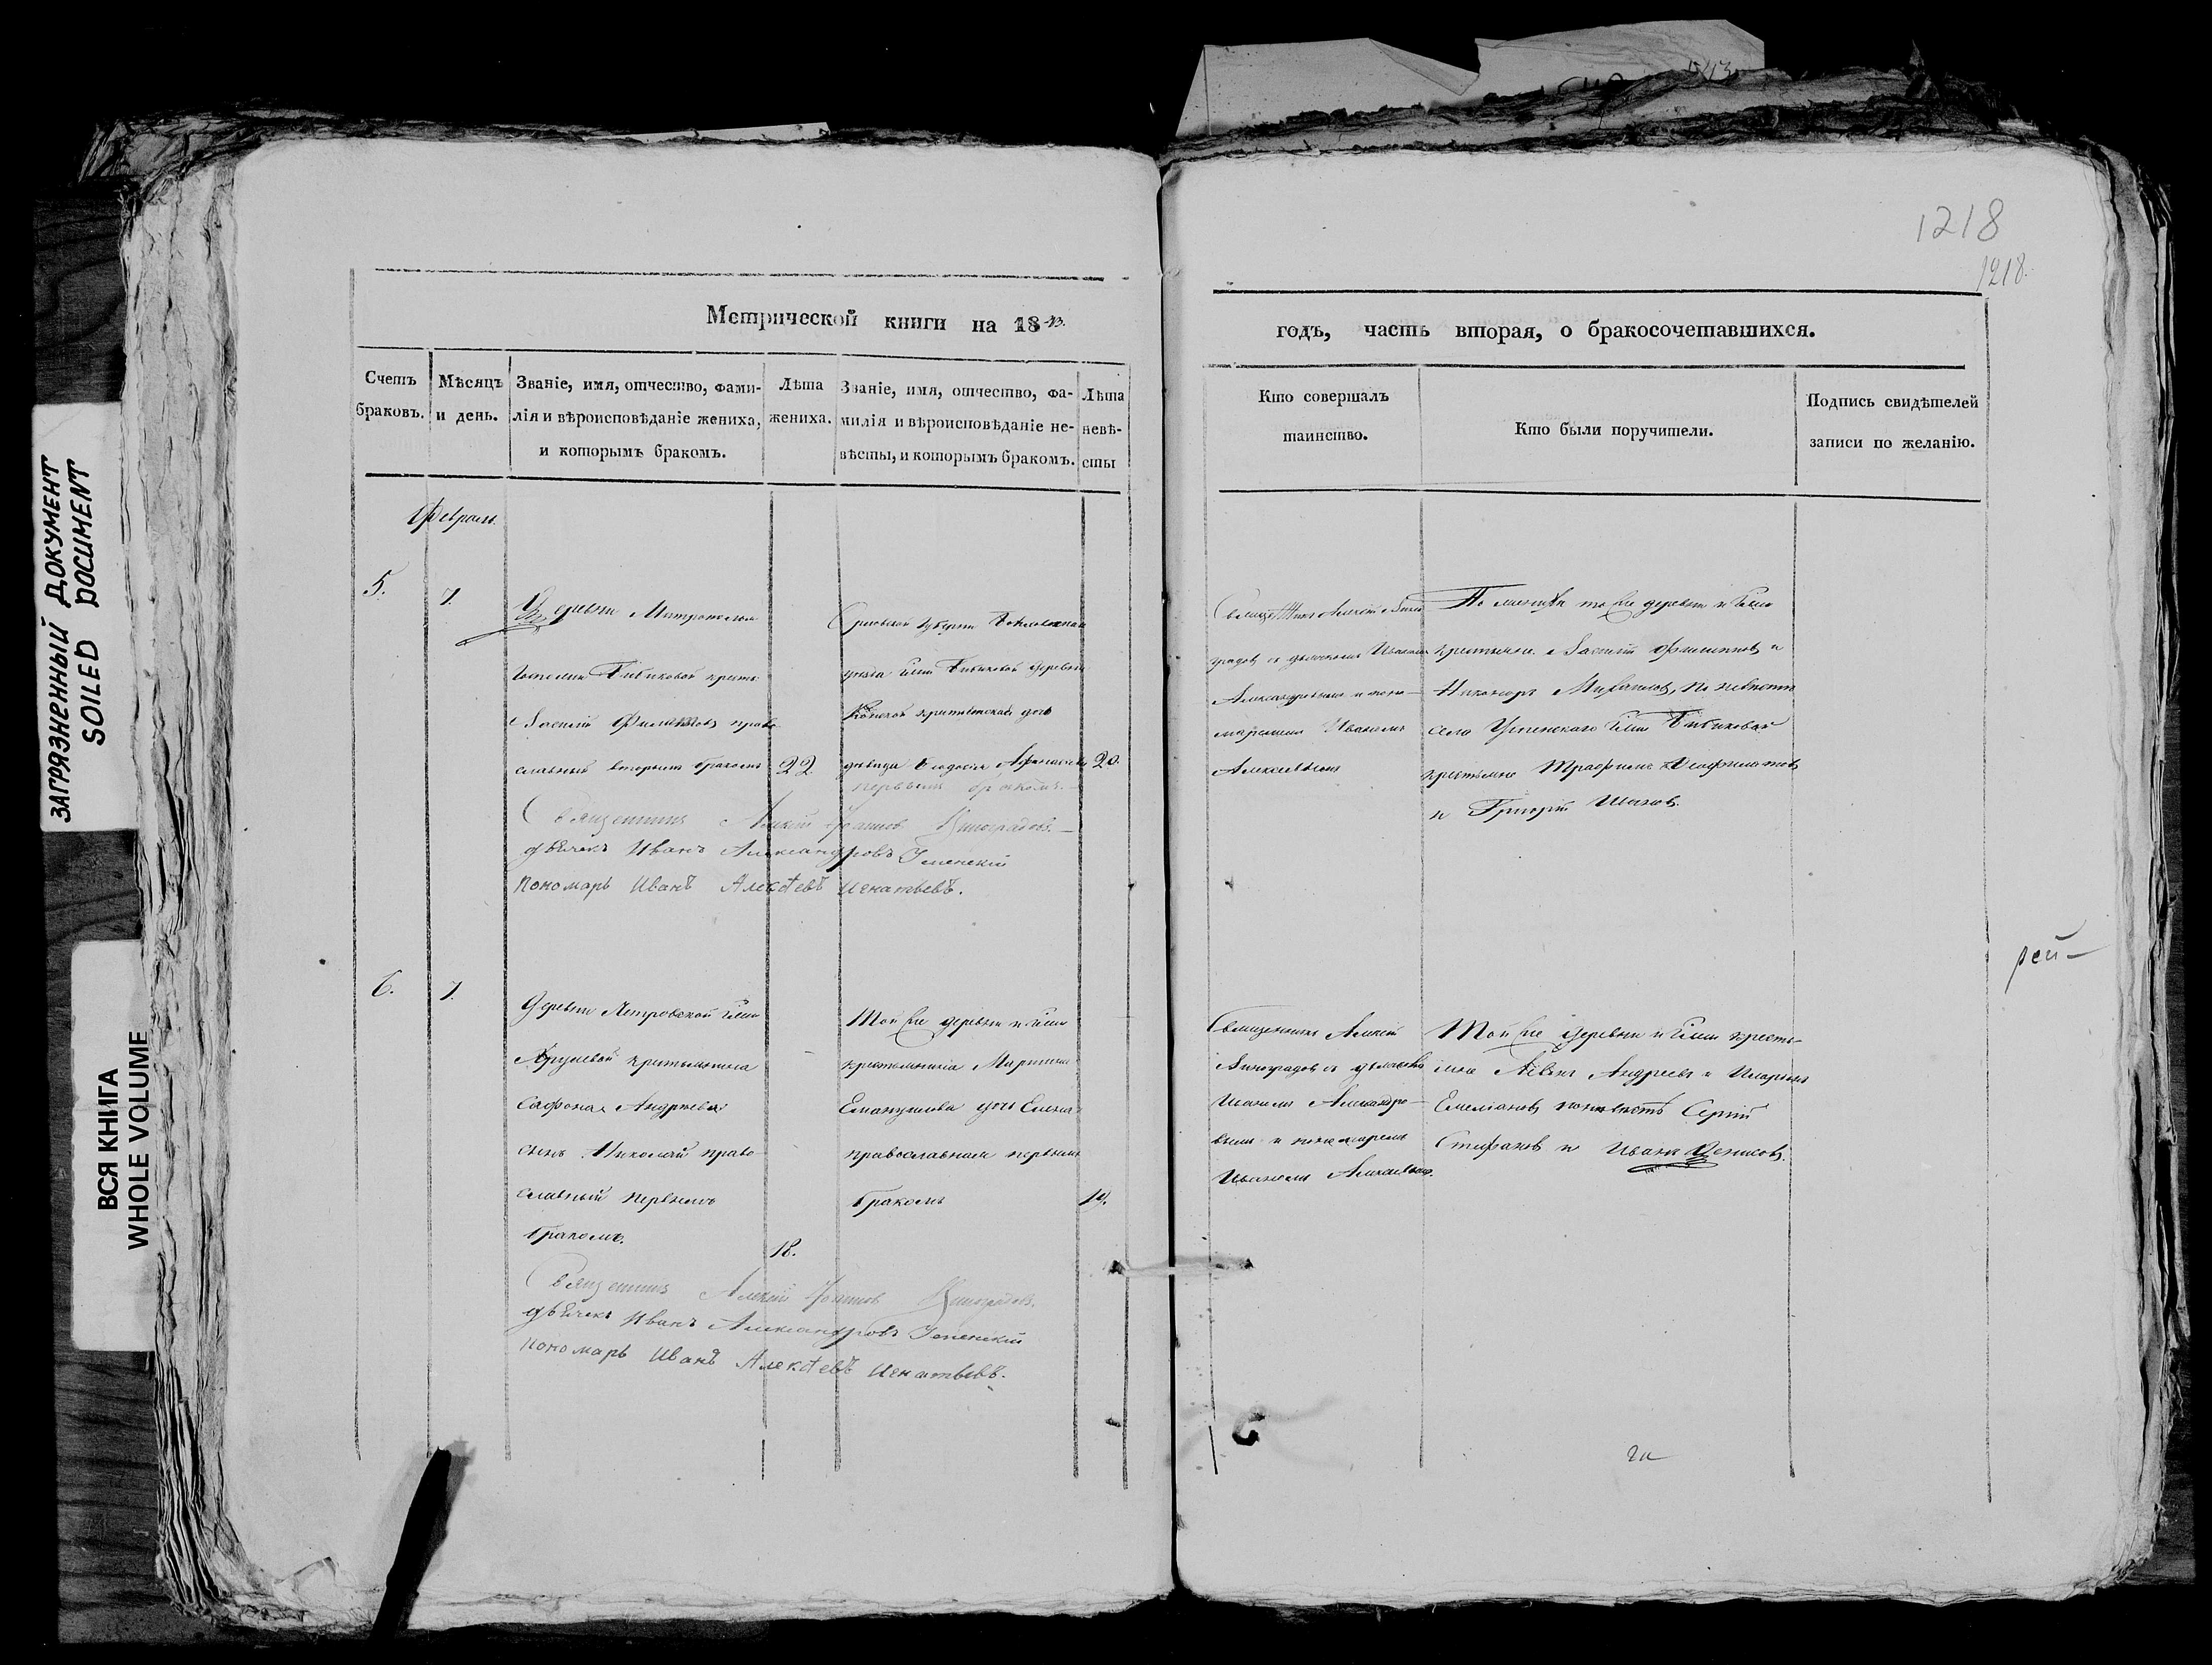 1218
1218.
Метрической книги на 1843.
годъ, часть вторая, о бракосочетавшихся.
Счетъ браковъ.
Мѣсяцъ и день.
Званіе, имя, отчество, фами-
лія и вѣроисповѣданіе жениха,
и которымъ бракомъ.
Лѣта
жениха.
Званіе, имя, отчество, фа-
милія и вѣроисповѣданіе не-
вѣсты, и которымъ бракомъ.
Лѣта
невѣ-
сты
Кто совершалъ
таинство.
Кто были поручители.
Подпись свидѣтелей
записи по желанію.
Февраль
5.
7.
деревни
Бибиковой крест
Василій Филиповъ право
славный вторымъ бракомъ
22
Орловской Губерніи
уѣзда Гжи Бибиковой деревни
крестьянская дочь
девица Феодосія Афанасіева
первымъ бракомъ.
20.
Священникъ Алексѣй Вино
градовъ съ дьячкомъ Иваномъ
Александровымъ и поно-
маремъ Иваномъ
Алексѣевымъ
По женихѣ той же деревни и Гжи
крестьяне Василій Филиповъ и
Никаноръ Михайловъ, по невѣстѣ
села Успенскаго Гжи Бибиковой
крестьяне Трофимъ
и Григорій
Священникъ Алексѣй Виноградовъ.
дьячекъ Иванъ Александровъ Успенскій
Пономарь Иванъ Алексѣевъ Игнатьевъ.
6.
7.
Деревни Петровской Гжи
крестьянина
Сафона Андреева
сынъ Николай право
славный первымъ
бракомъ.
18.
Той же деревни и Гжи
крестьянина Мартина
Емануилова дочь Елена
православная первымъ
бракомъ
19.
Священникъ Алексѣй
Виноградовъ съ дьячкомъ
Иваномъ Александро-
вымъ и пономаремъ
Иваномъ Алексѣевымъ.
Той же деревни и Гжи кресть-
яне Андреевъ и Иларіонъ
Емеліановъ по невѣстѣ Сергій
Стефановъ и Иванъ Денисовъ.
Священникъ Алексѣй Виноградовъ.
дьячекъ Иванъ Александровъ Успенскій
Пономарь Иванъ Алексѣевъ Игнатьевъ.
рей-
ЗАГРЯЗНЕННЫЙ ДОКУМЕНТ
SOILED DOCUMENT
ВСЯ КНИГА
WHOLE VOLUME